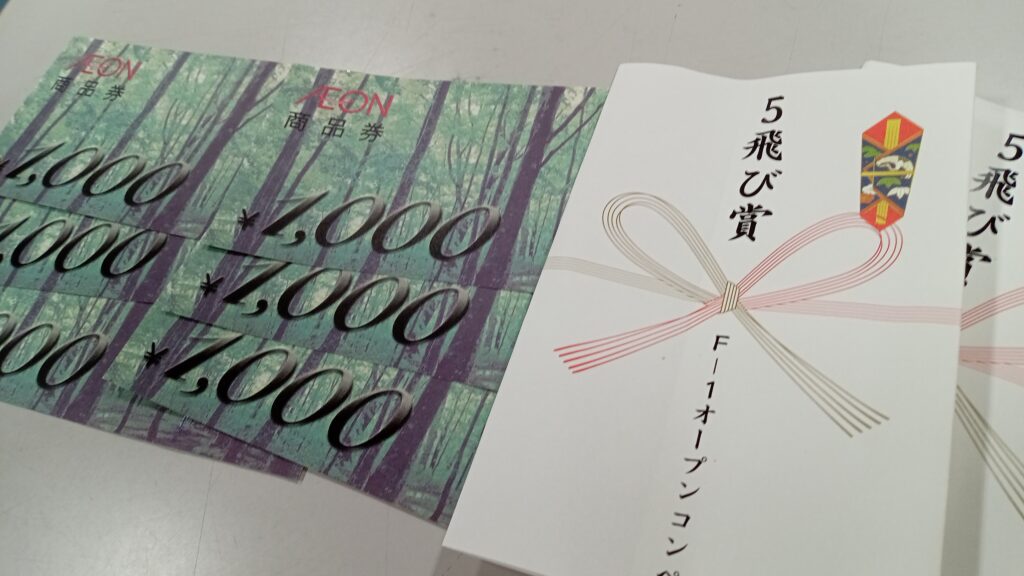 ÆON
商品券
1,000
1,000
000
ÆON
商品券
¥1,000
¥1,000
¥1,000
5飛び賞
F-1オープンコンペ
5飛び賞